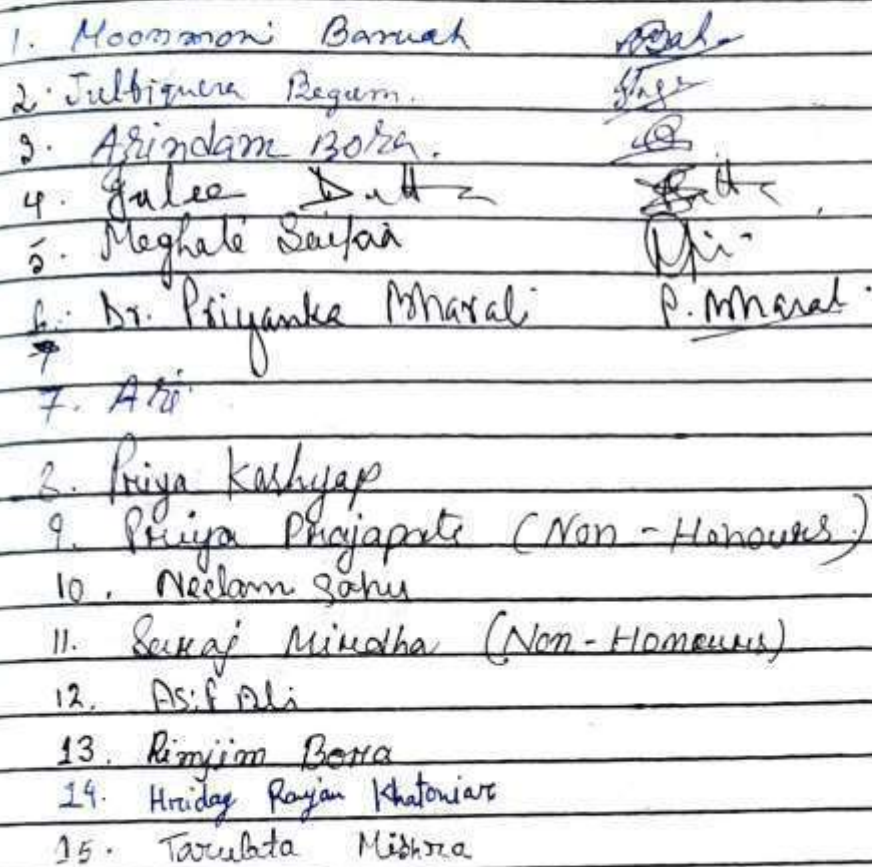 1. Moonmoni Baruah
2. Julbiquera Begum.
3. Arindam Bora.
4. Julee Dutta Dutta
5. Meghali Saikia
6. Dr. Priyanka Bharali P. Bharali
7. Ari
8. Priya Kashyap
9. Priya Prajapati (Non - Honours)
10. Neelam Sahu
11. Suraj Mirdha (Non - Honours)
12. Asif Ali
13. Rimjim Borra
14. Hriday Ranjan Khatoniar
15. Tarulata Mishra